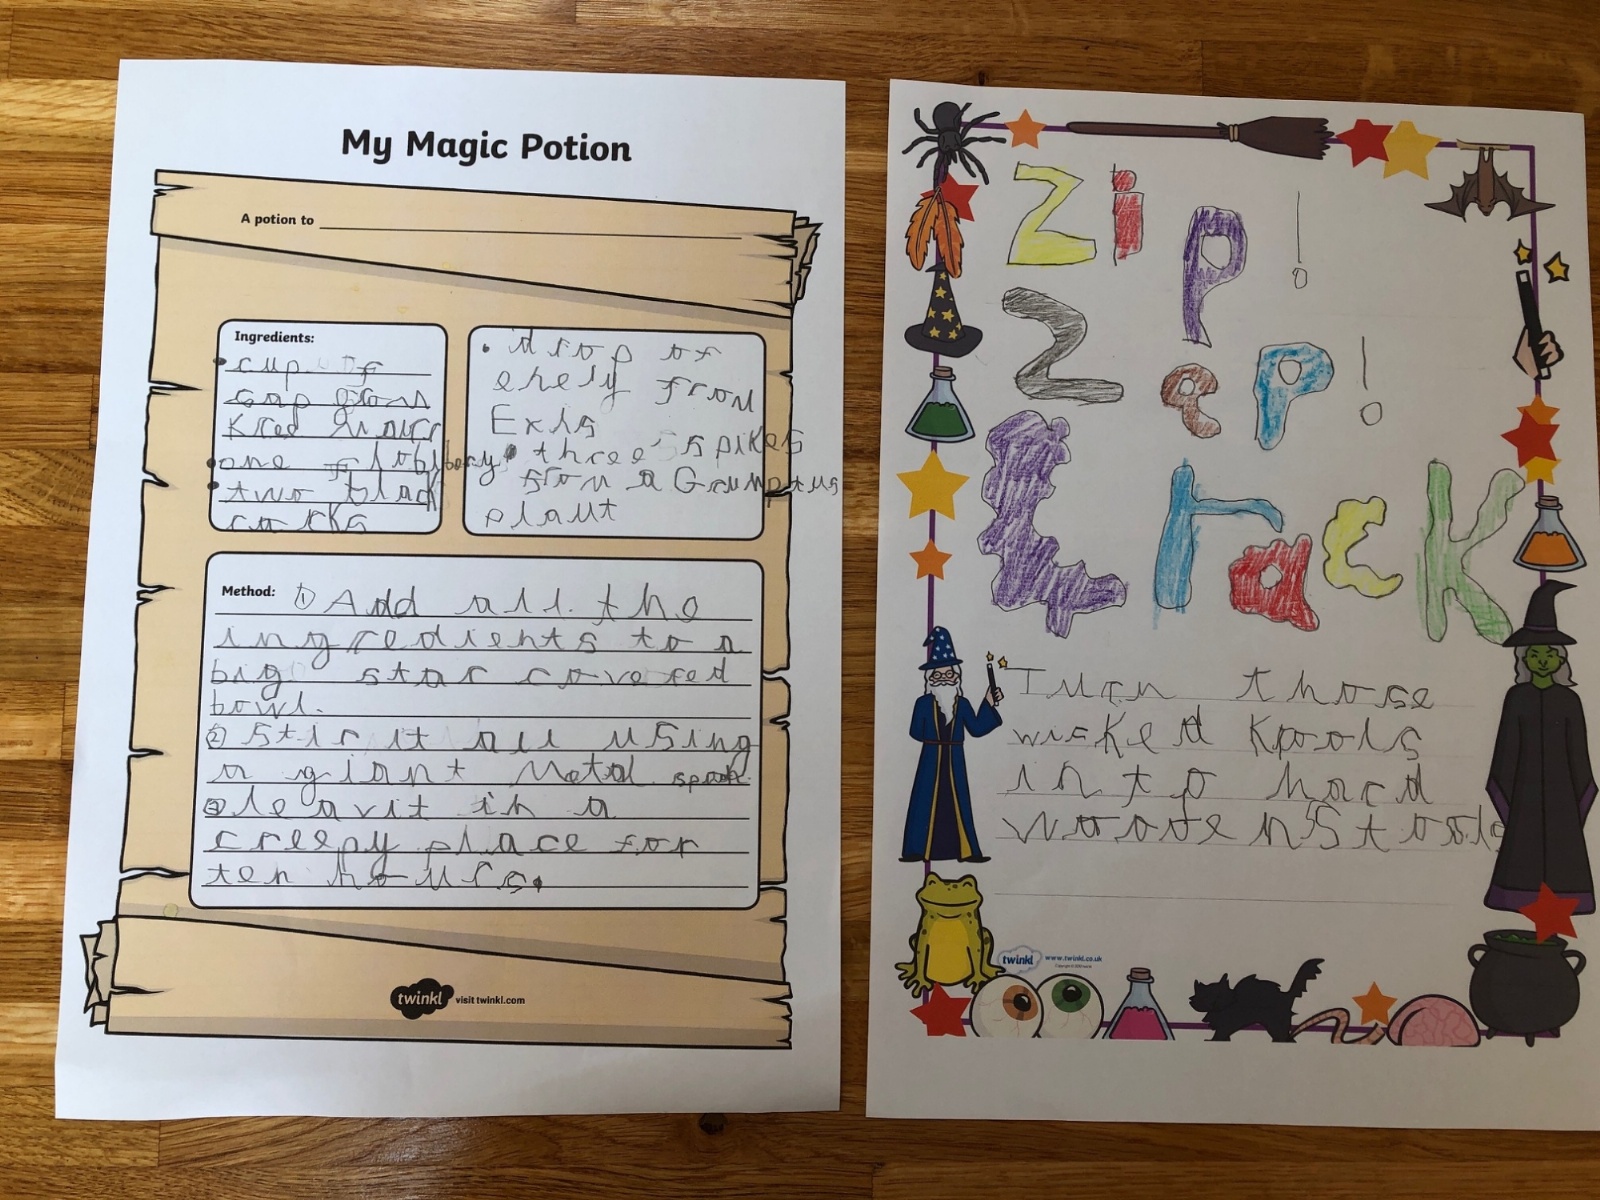 My Magic Potion
A potion to
Ingredients:
cup of
one
two black
rocks
drop of
from
Exis
three spikes
from a Grumptus
plant
Method: ① Add all the
ingredients to a
big star covered
bowl.
② Stir it all using
a giant Metal spoon
③ leavit in a
creepy place for
ten hours.
twinkl visit twinkl.com
Zip!
Zap!
Crack
Turn those
wicked Kpools
into hard
Woooden Stools
twinkl www.twinkl.co.uk